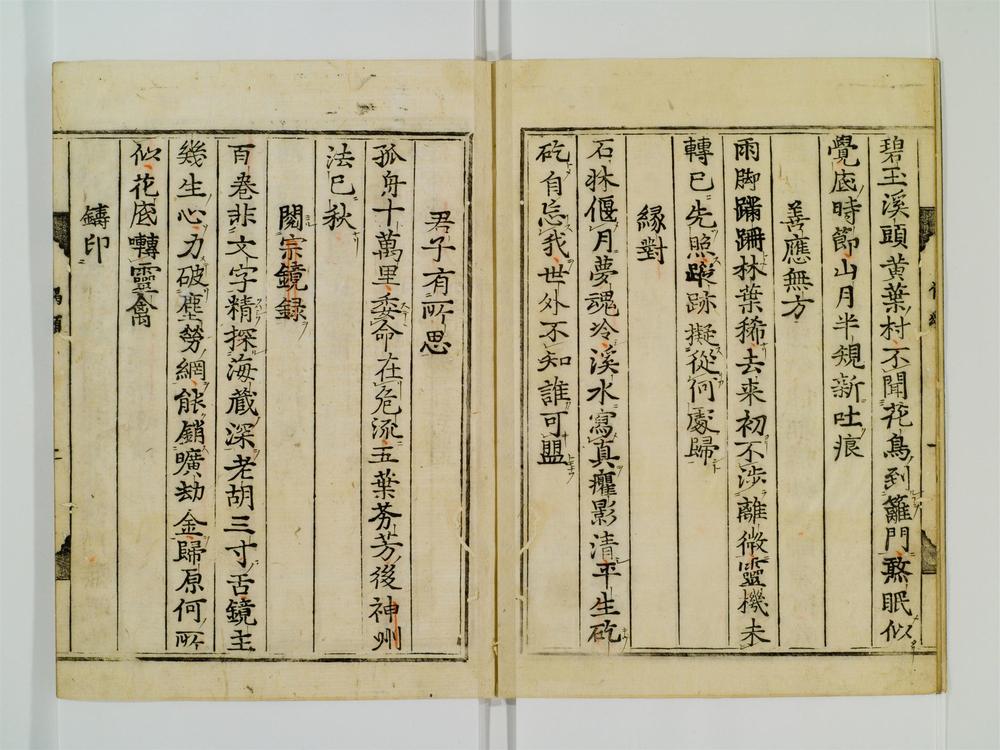 碧玉溪頭黄葉村不聞花鳥到籬門熬眠似
覺底時節山月半規新吐痕
善應無方
雨脚蹣跚林葉稀去来初不涉離微靈機未
轉已先照蹤跡擬從何處歸
緣對
石牀偃月夢魂冷溪水寫真癯影清平生矻
矻自忘我世外不知誰可盟
君子有所思
孤舟十萬里委命在危流五葉芬芳後神州
法已秋
閱宗鏡録
百卷非文字精探海藏深老胡三寸舌鏡主
幾生心力破塵勞網能銷曠劫金歸原何所
似花底囀靈禽
鑄印